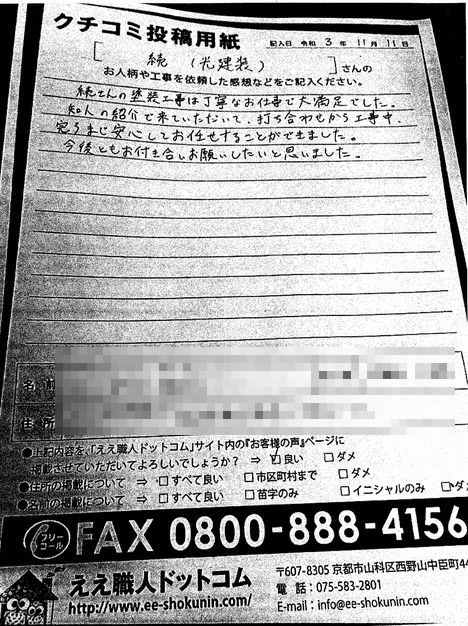 クチコミ投稿用紙
記入日 令和 3 年 11 月 11 日
[ 続 (光建装) ] さんの
お人柄や工事を依頼した感想などをご記入ください。
続さんの塗装工事は丁寧なお仕事で大満足でした。
知人の紹介で来ていただいて、打ち合わせから工事中、
完了まで安心してお任せすることができました。
今後ともお付き合いお願いしたいと思いました。
名前
住所
●上記内容を、「ええ職人ドットコム」サイト内の『お客様の声』ページに
掲載させていただいてよろしいでしょうか? ⇒ ☑良い □ダメ
●住所の掲載について ⇒ □すべて良い □市区町村まで □ダメ
●名前の掲載について ⇒ □すべて良い □苗字のみ □イニシャルのみ □ダメ
フリーコール FAX 0800-888-4156
ええ職人ドットコム
http://www.ee-shokunin.com/
〒607-8305 京都市山科区西野山中臣町44
電 話:075-583-2801
E-mail:info@ee-shokunin.com